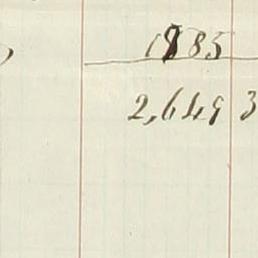 1885
2,649 3